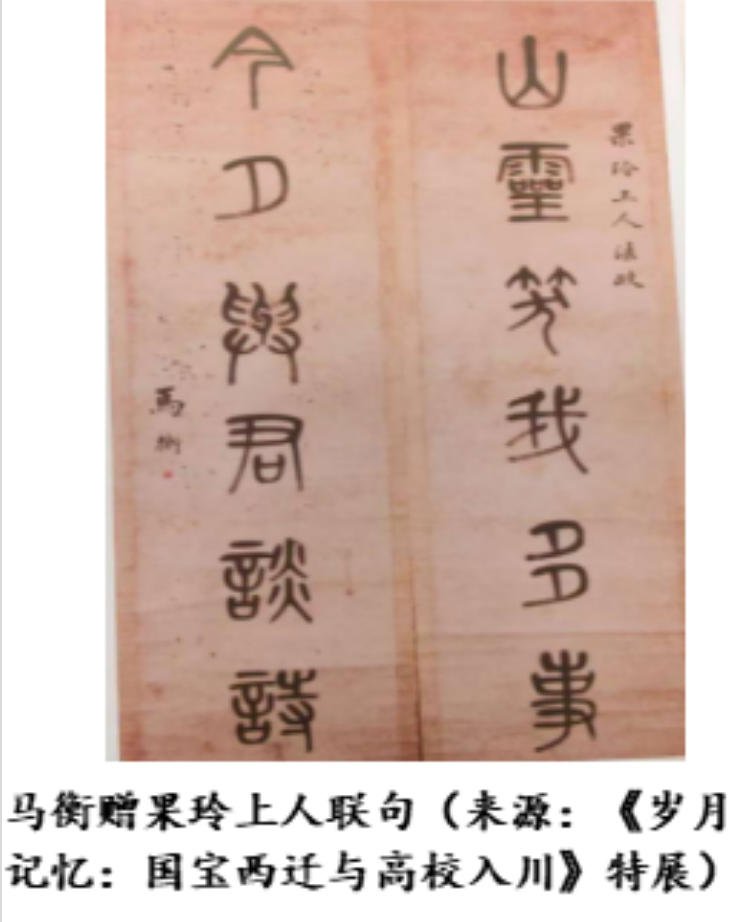 果玲上人法政
山靈笑我多事
今夕與君談詩
馬衡
马衡赠果玲上人联句（来源：《岁月
记忆：国宝西迁与高校入川》特展）